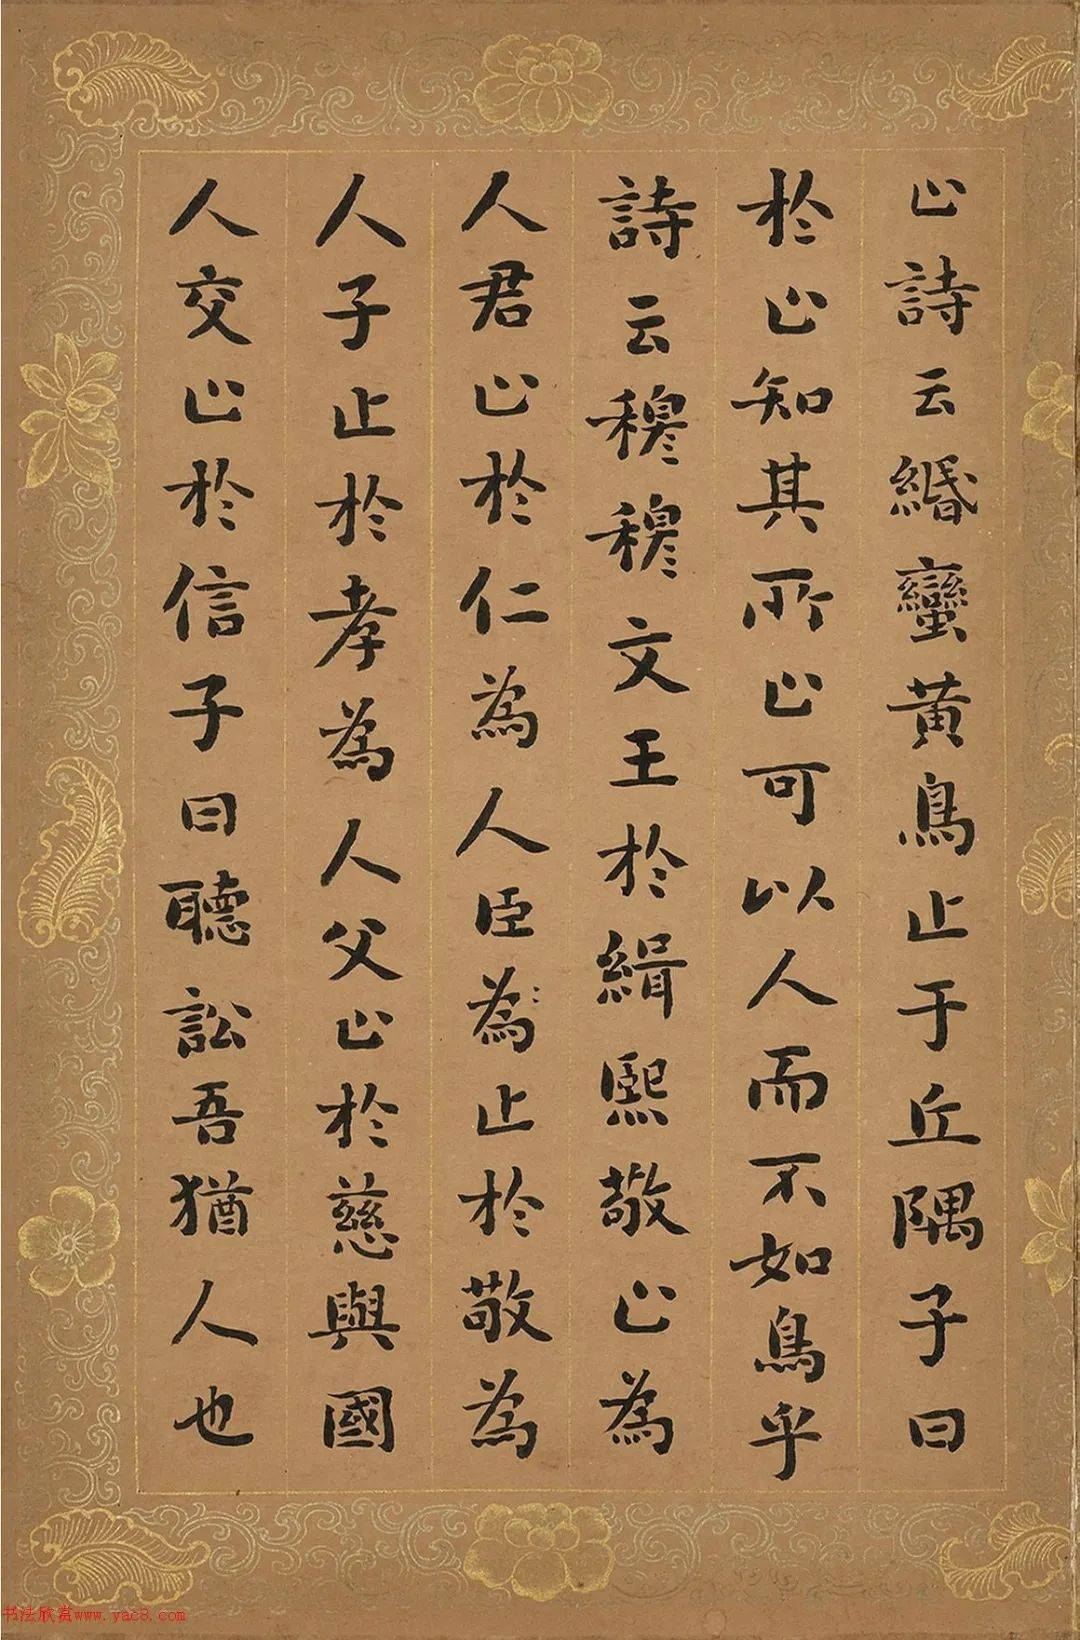 止詩云緡蠻黃鳥止于丘隅子曰
於止知其所止可以人而不如鳥乎
詩云穆穆文王於緝熙敬止為
人君止於仁為人臣為止於敬為
人子止於孝為人父止於慈與國
人交止於信子曰聽訟吾猶人也
书法欣赏www.yac8.com